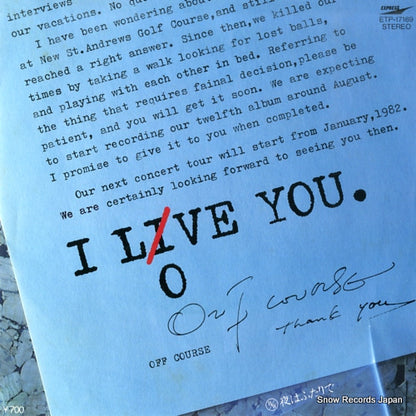 interviews
our vacations. No que
I have been wondering about
at New St. Andrews Golf Course, and still
reached a right answer. Since then, we killed our
times by taking a walk looking for lost balls,
and playing with each other in bed. Referring to
the thing that requires fainal decision, please be
patient, and you will get it soon. We are expecting
to start recording our twelfth album around August.
I promise to give it to you when completed.
Our next concert tour will start from January, 1982.
We are certainly looking forward to seeing you then.
I LIVE YOU.
O
Off Course
thank you
OFF COURSE
EXPRESS
ETP-17169
STEREO
¥700
夜はふたりで
Snow Records Japan
www.snowrecords.jp